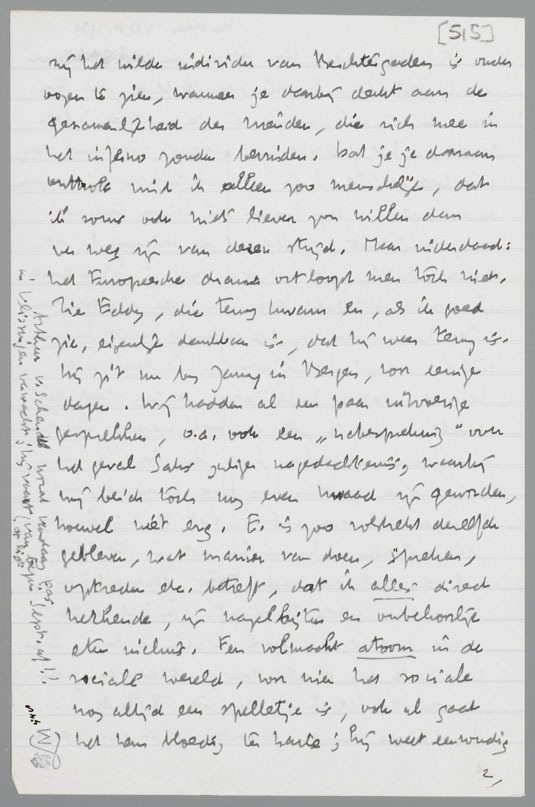 [S|S]
mij het wilde individu van Berchtesgaden is onder
ogen te zien, wanneer je daarbij denkt aan de
gezamenlijkheid der honden, die zich mee in
het inferno zouden bevinden. Dat je je daaraan
onttrok vind ik alleen zoo menschelijk, dat
ik soms ook niet liever zou willen dan
ver weg zijn van dezen strijd. Maar inderdaad:
het Europeesche drama ontloopt men tòch niet.
Zie Eddy, die terug kwam en, als ik goed
zie, eigenlijk dankbaar is, dat hij weer terug is.
Hij zit nu bij Jany in Bergen, voor eenige
dagen. Wij hadden al een paar uitvoerige
gesprekken, o.a. ook een „nabespreking" over
het geval Saks zaliger nagedachtenis, waarbij
wij beide tòch nog even kwaad zijn geworden,
hoewel niét erg. E. is zoo volstrekt dezelfde
gebleven, wat manier van doen, spreken,
optreden etc. betreft, dat ik alles direct
herkende, zijn nagelbijten en onbehoorlijk
eten incluis. Een volmaakt atoom in de
sociale wereld, voor wien het sociale
nog altijd een spelletje is, ook al gaat
het hem bloedig ter harte; hij weet eenvoudig
2,
Arthur v. Schendel wordt vandaag pas
in Vlissingen verwacht; hij vaart van begin Sept. af!!